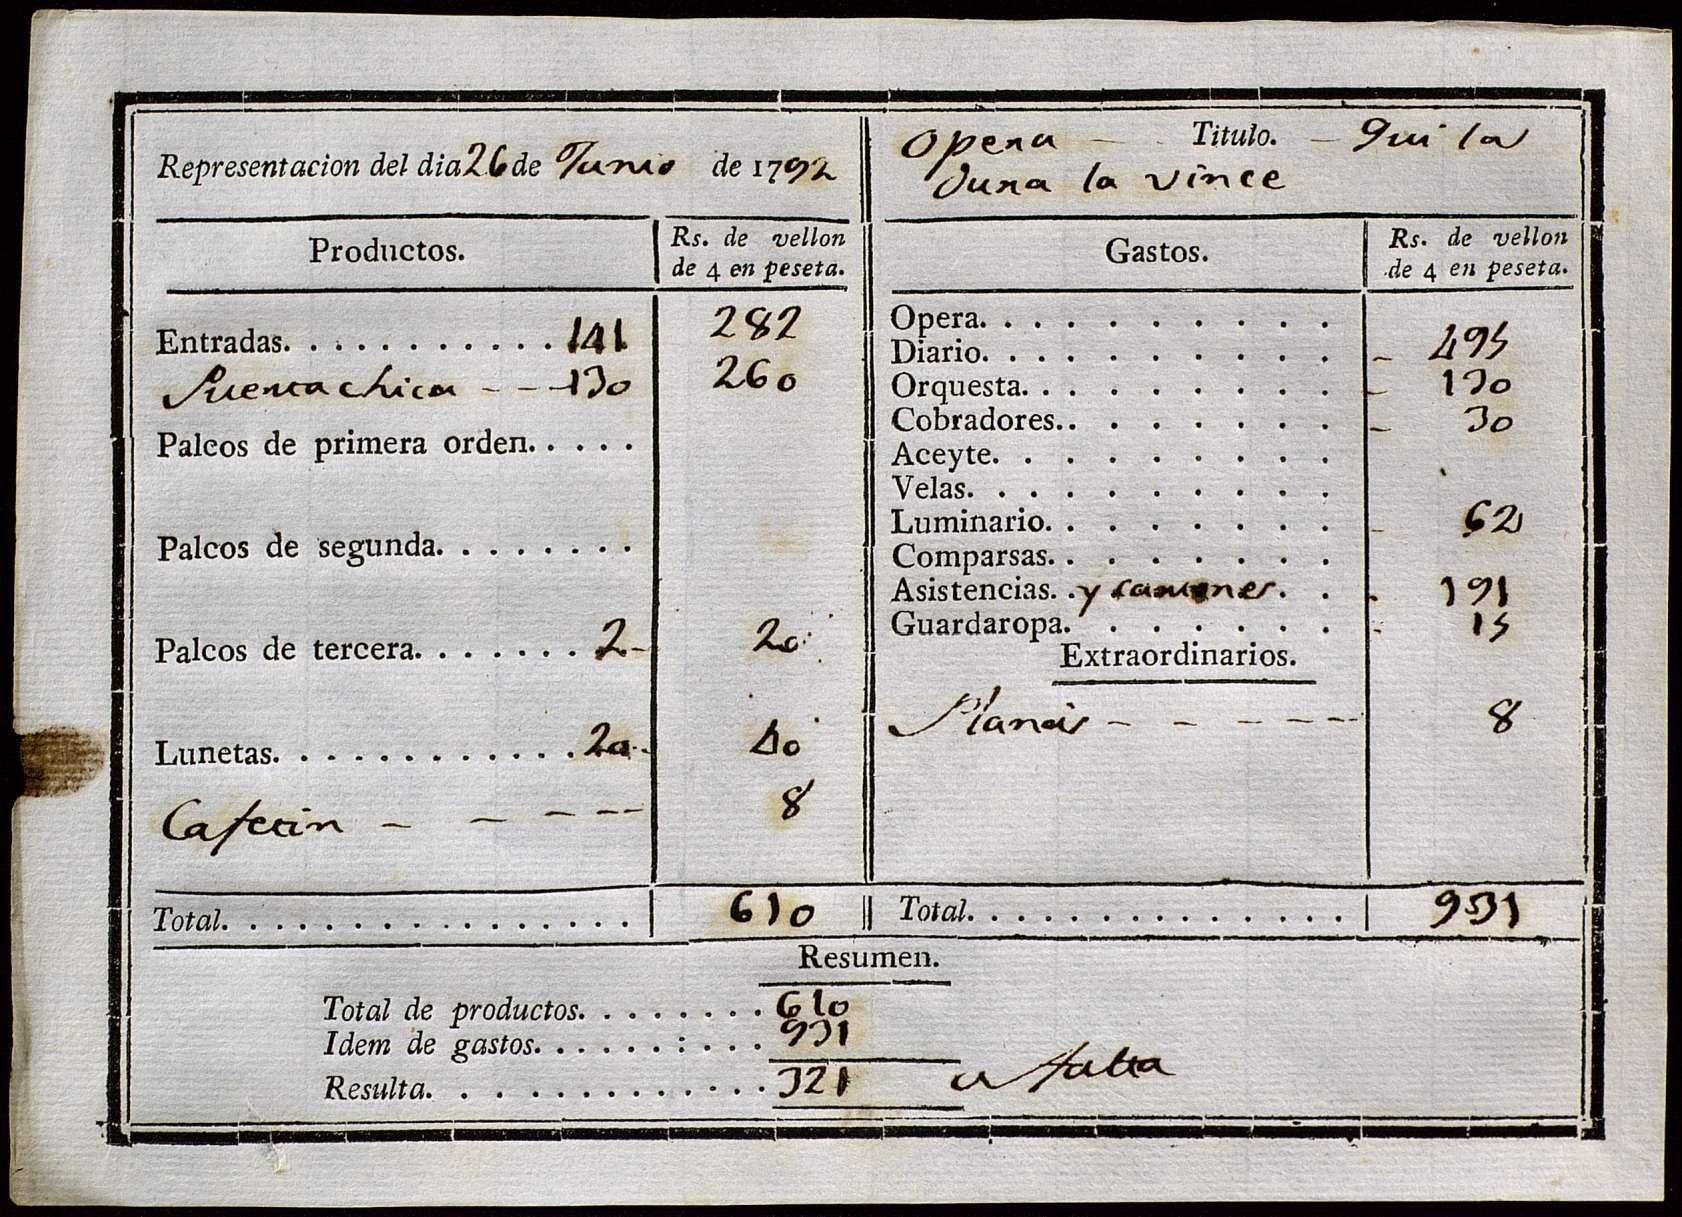 Representacion del dia 26 de Junio de 1792
Opera — Titulo. — Qui la
Dura la vince
Productos.
Rs. de vellon
de 4 en peseta.
Entradas. . . . . . . . . . . 141 282
Puerta chica - - - 130 260
Palcos de primera orden. . . . .
Palcos de segunda. . . . . . . .
Palcos de tercera. . . . . . . 2 - 20
Lunetas. . . . . . . . . . . . 20 - 40
Cafetin - - - - - 8
Total. . . . . . . . . . . . . . . . 610
Gastos.
Rs. de vellon
de 4 en peseta.
Opera. . . . . . . . . . .
Diario. . . . . . . . . . . - 495
Orquesta. . . . . . . . . - 130
Cobradores.. . . . . . . - 30
Aceyte. . . . . . . . . .
Velas. . . . . . . . . . .
Luminario. . . . . . . . - 62
Comparsas. . . . . . . .
Asistencias. . y . . . 191
Guardaropa. . . . . . . - 15
Extraordinarios.
- - - - - - 8
Total. . . . . . . . . . . . . . . 931
Resumen.
Total de productos. . . . . . . . 610
Idem de gastos. . . . . . : . . . 931
Resulta. . . . . . . . . . . . . 321 a falta